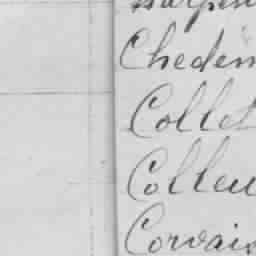 Chedem
Collet
Colleu
Corvais